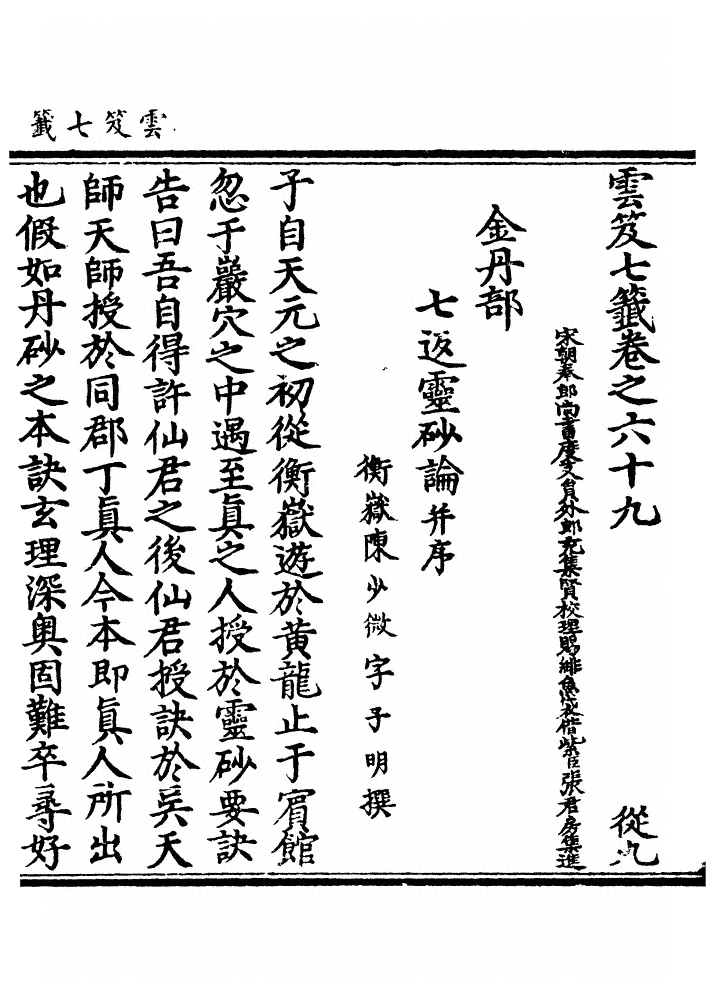 雲笈七籤
雲笈七籤卷之六十九 從九
宋朝奉郎尚書度支員外郎充集賢校理賜緋魚袋借紫臣張君房集進
金丹部
七返靈砂論并序
衡嶽陳少微字子明撰
子自天元之初從衡嶽遊於黃龍止于賔館
忽于巖穴之中遇至眞之人授於靈砂要訣
告曰吾自得許仙君之後仙君授訣於吳天
師天師授於同郡丁眞人今本即眞人所出
也假如丹砂之本訣玄理深奥固難卒尋好